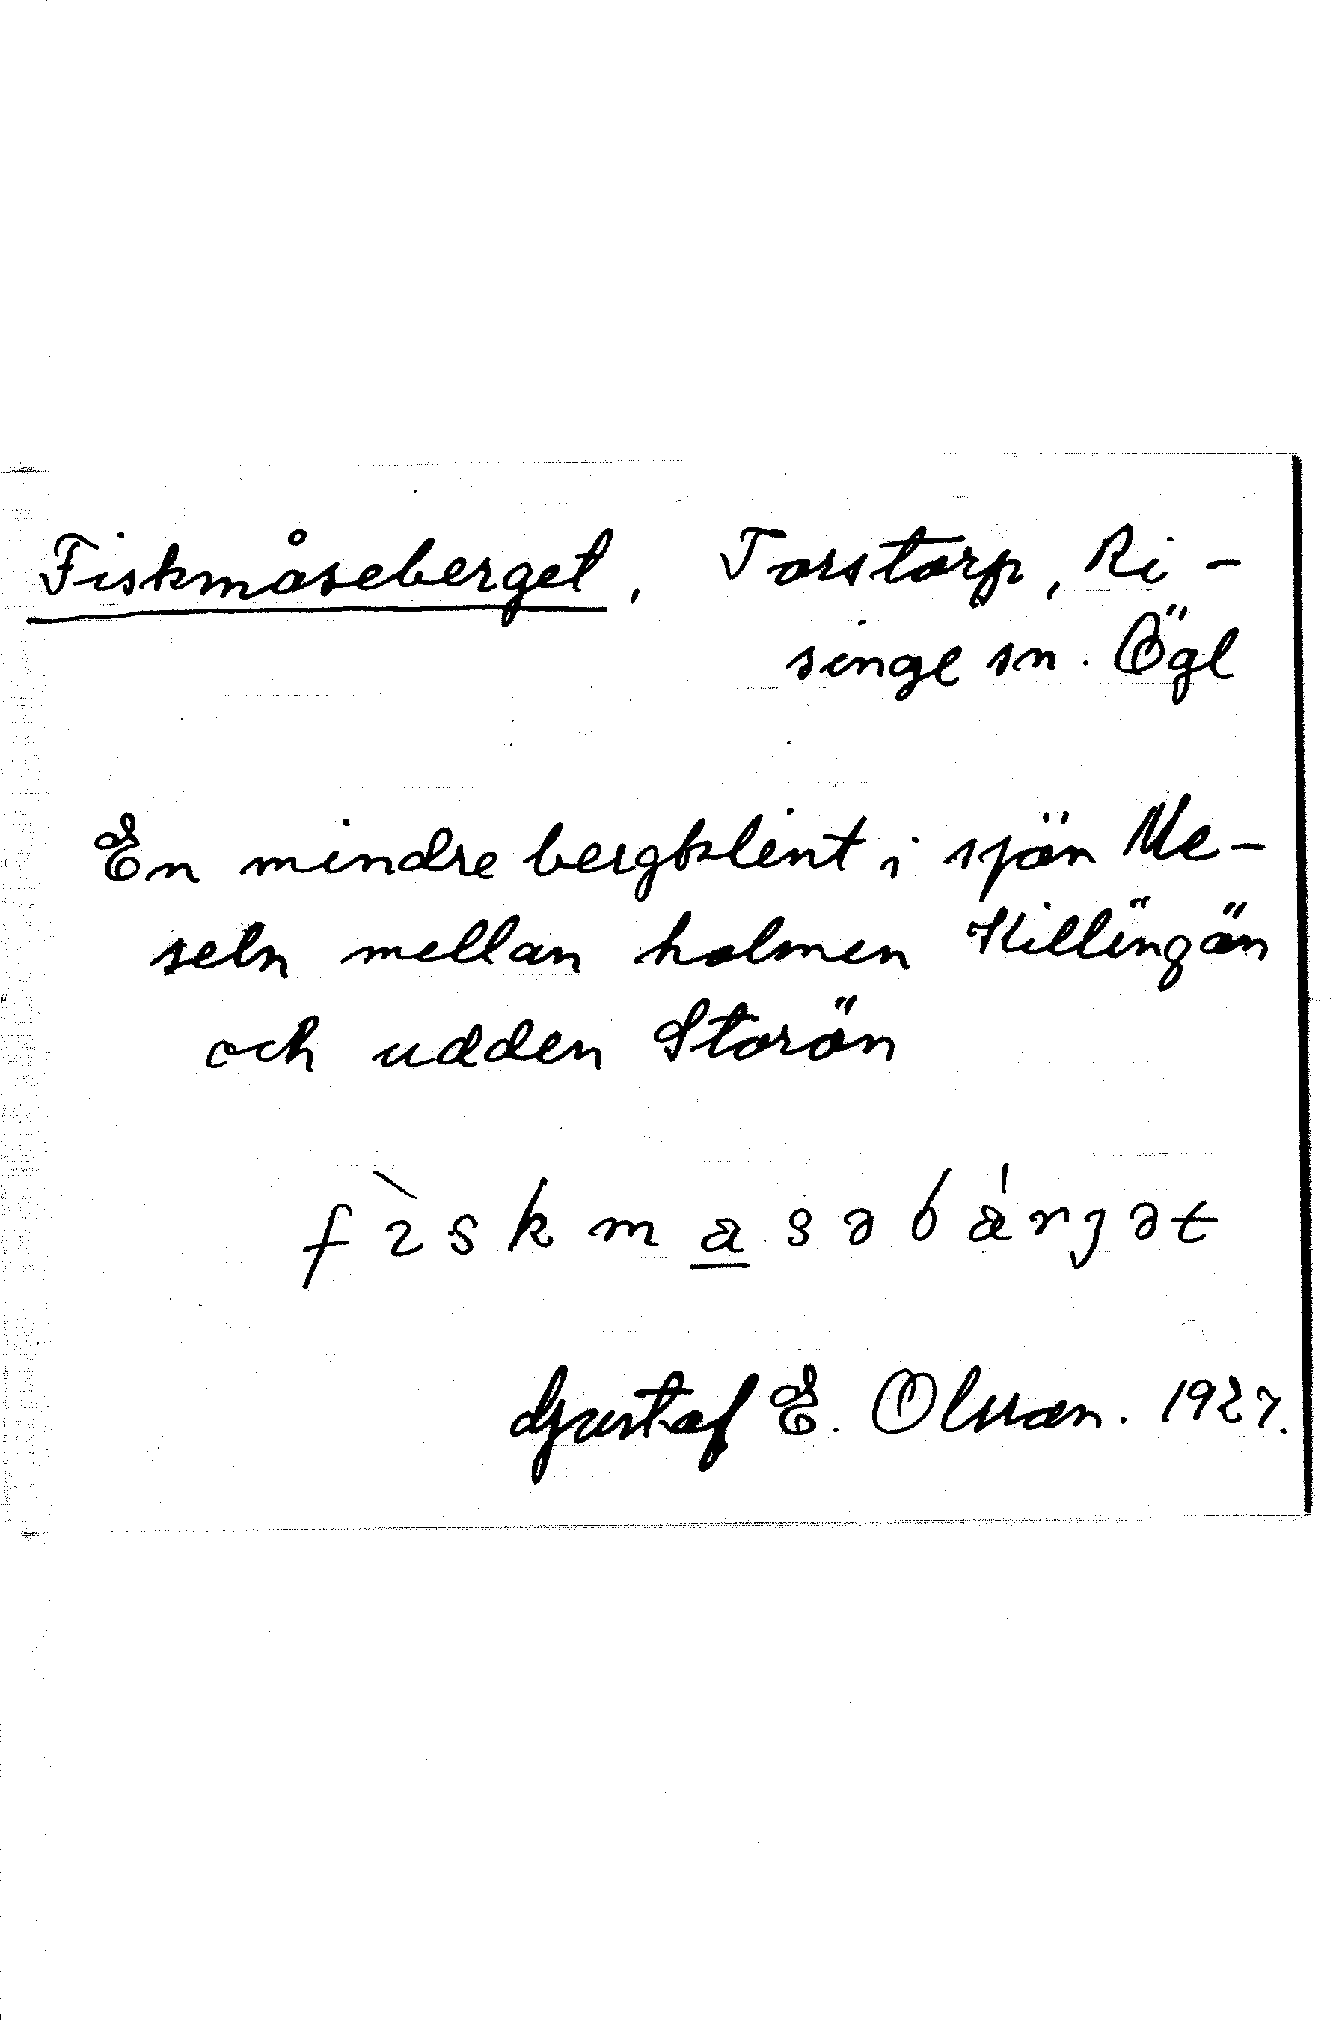 Fiskmåseberget, Torstorp, Ri-
singe sn. Ögl
En mindre bergklint i sjön Me-
seln mellan holmen Killingön
och udden Storön
Gustaf E. Olsson. 1927.